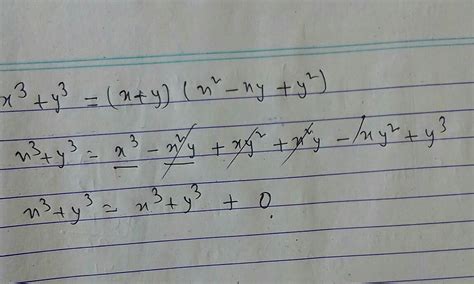 x³ + y³ = (x+y) (x² - xy + y²)
x³ + y³ = x³ - x²y + xy² + x²y - xy² + y³
x³ + y³ = x³ + y³ + 0.